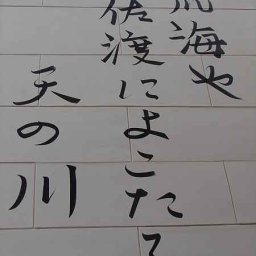 荒海や
佐渡によこたて
天の川